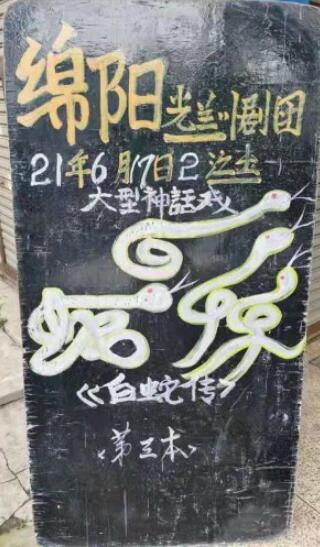 绵阳光兰川剧团
21年6月17日2
大型神話戏
《白蛇传》
<第三本>